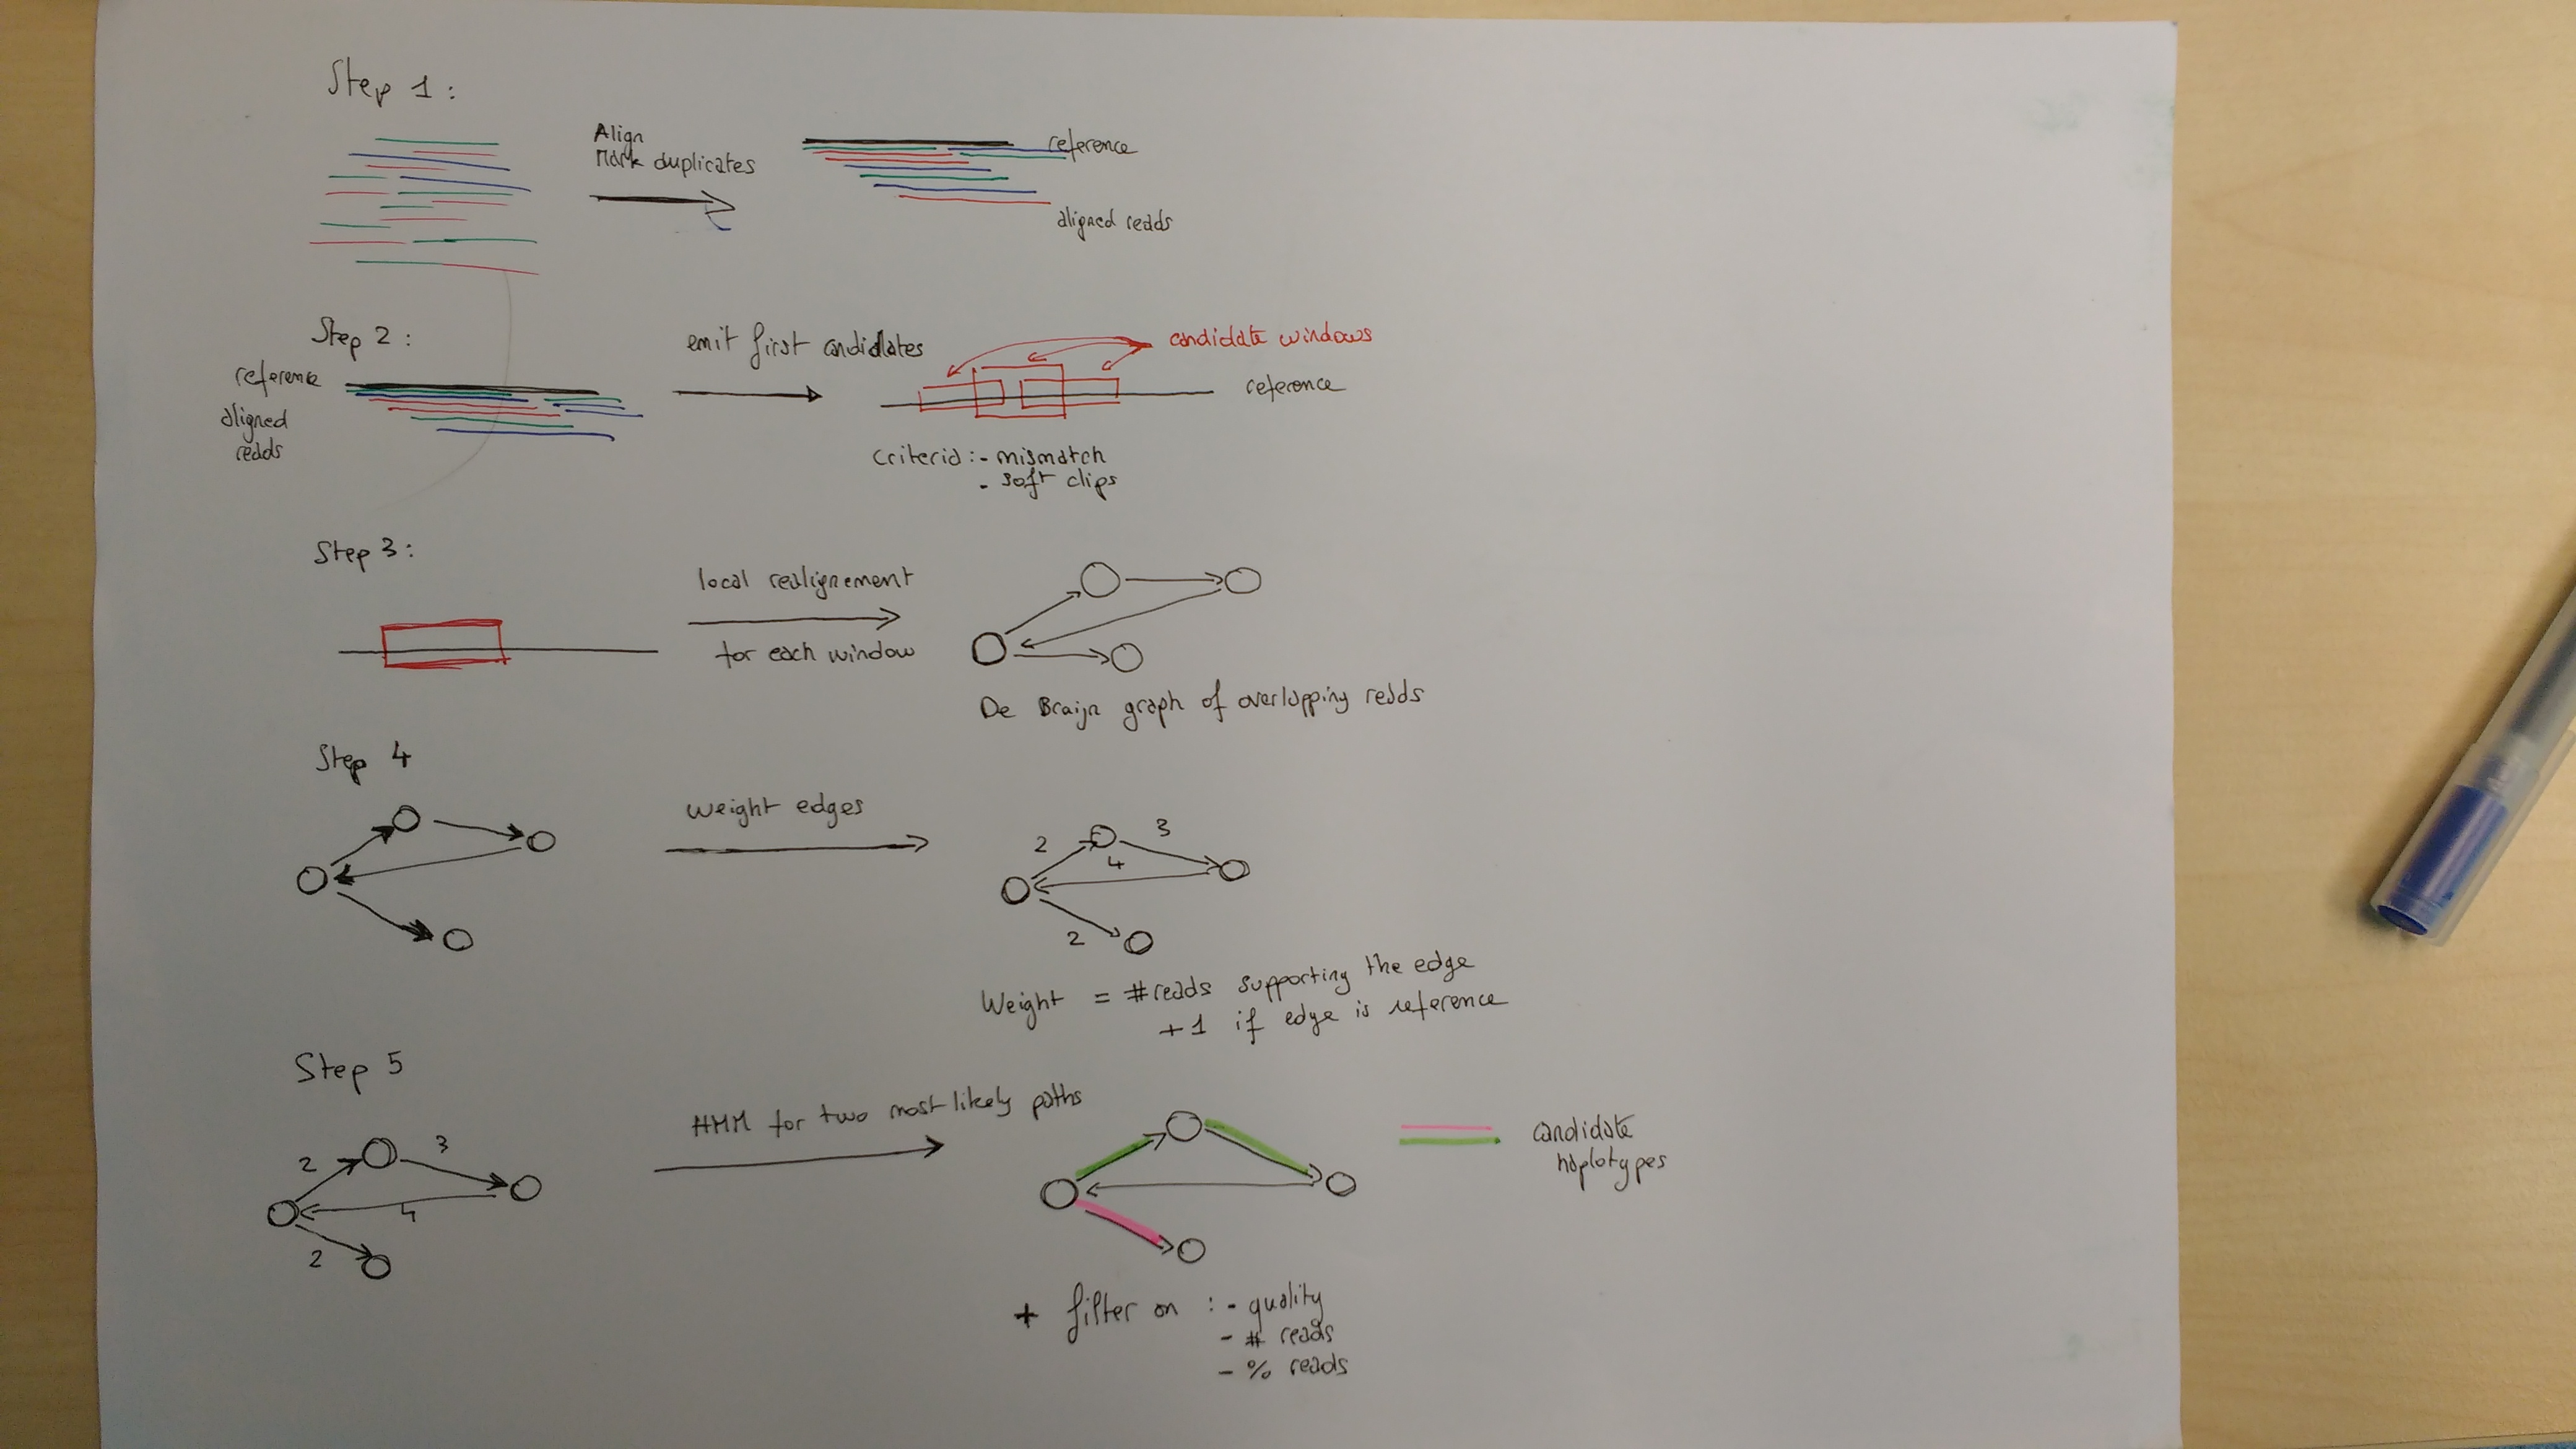 Step 1 :
Align
Mark duplicates
reference
aligned reads
Step 2 :
emit first candidates
candidate windows
reference
aligned
reads
reference
criteria : - mismatch
- soft clips
Step 3 :
local realignement
for each window
De Braijn graph of overlapping reads
Step 4
weight edges
2
3
4
2
Weight = # reads supporting the edge
+1 if edge is reference
Step 5
HMM for two most likely paths
2
3
4
2
candidate
haplotypes
+ filter on : - quality
- # reads
- % reads